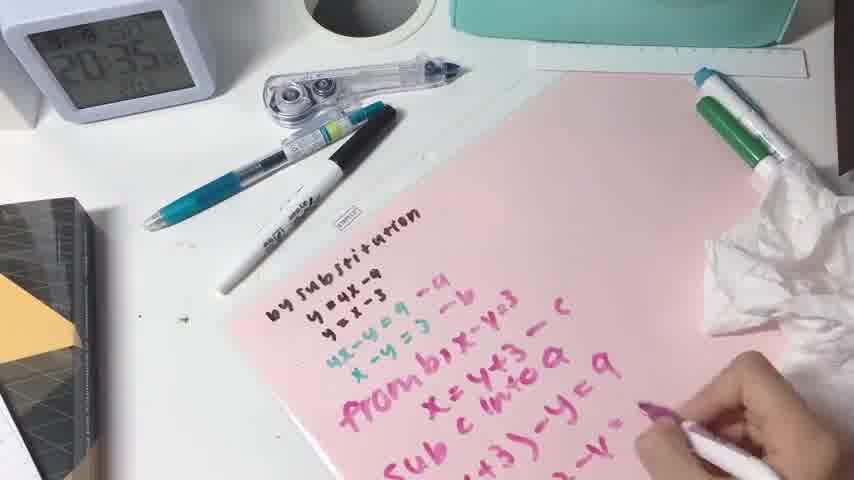 20:35
by substitution
y = 4x - 9
y = x - 3
4x - y = 9 - a
x - y = 3 - b
from b, x - y = 3
x = y + 3 - c
sub c into a
y + 3) - y = 9
- y =